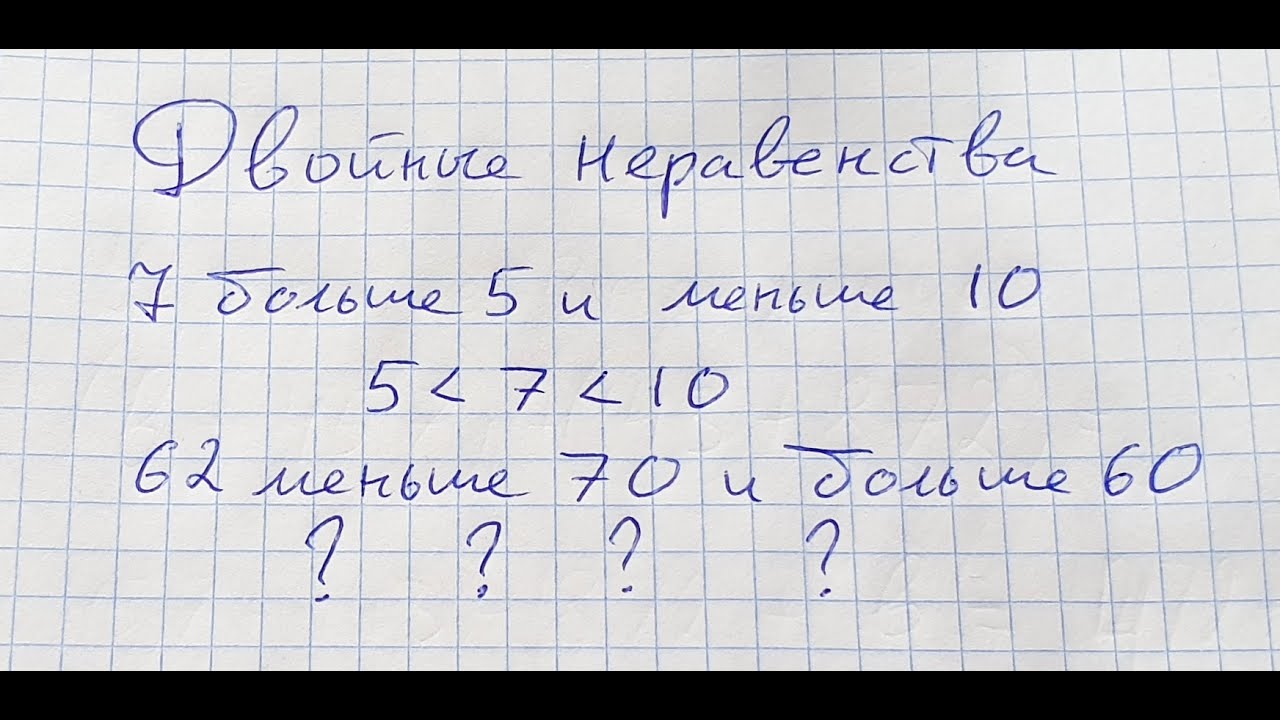 Двойные неравенства
7 больше 5 и меньше 10
5 < 7 < 10
62 меньше 70 и больше 60
? ? ? ?